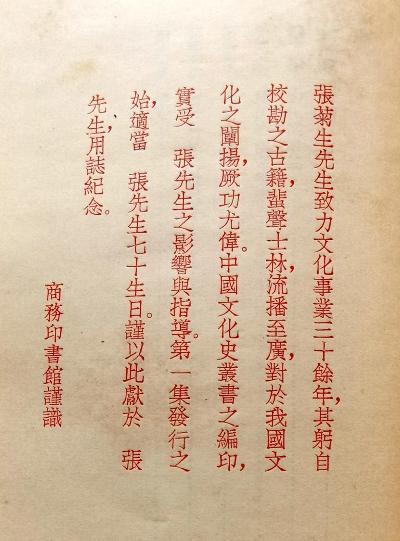 張菊生先生致力文化事業三十餘年，其躬自
校勘之古籍，蜚聲士林，流播至廣，對於我國文
化之闡揚，厥功尤偉。中國文化史叢書之編印，
實受　張先生之影響與指導。第一集發行之
始，適當　張先生七十生日。謹以此獻於　張
先生，用誌紀念。
商務印書館謹識